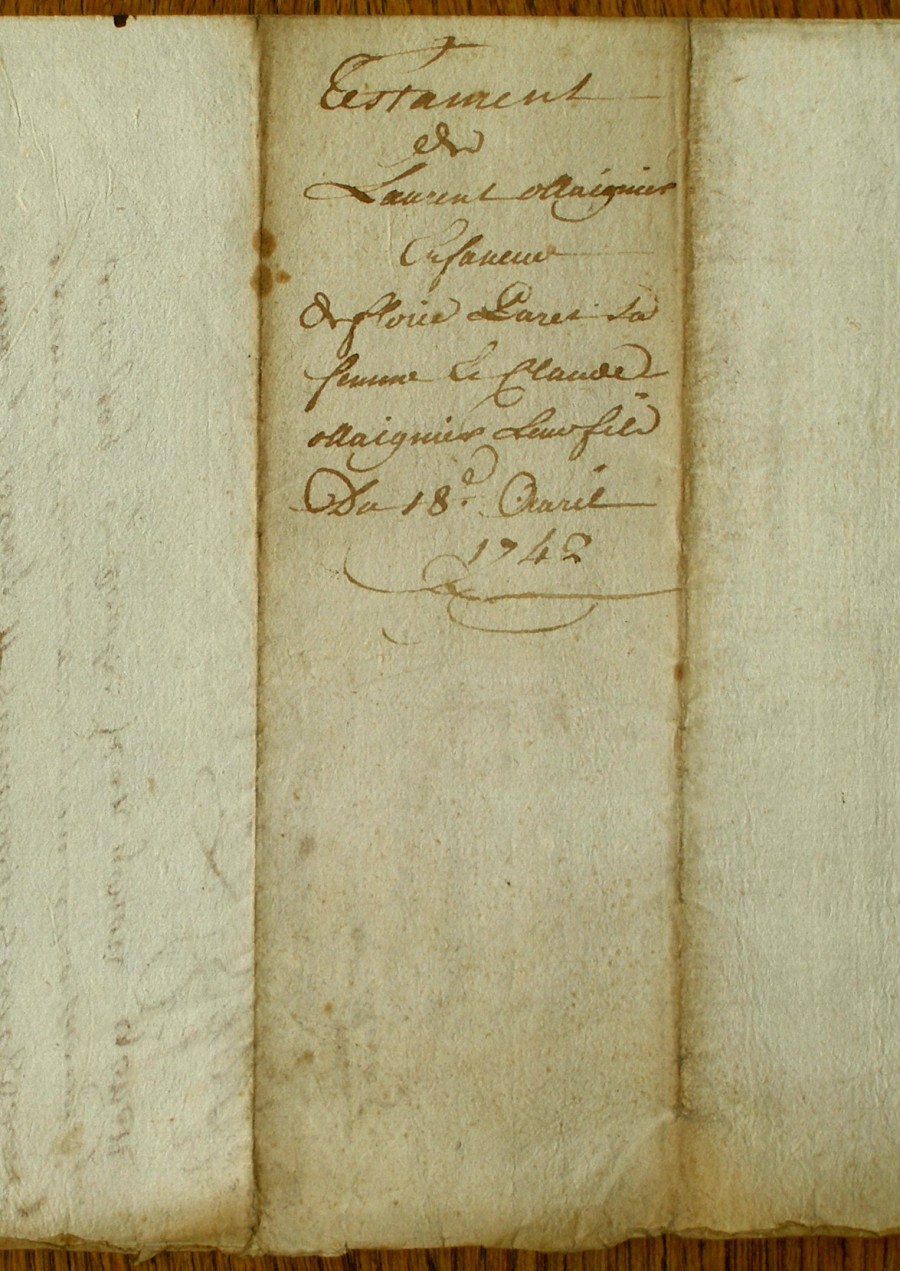 Testament
de
Laurent Maignier
de florie Paret sa
femme & Claude
Maignier Leur fils
Du 18e. Avril
1742